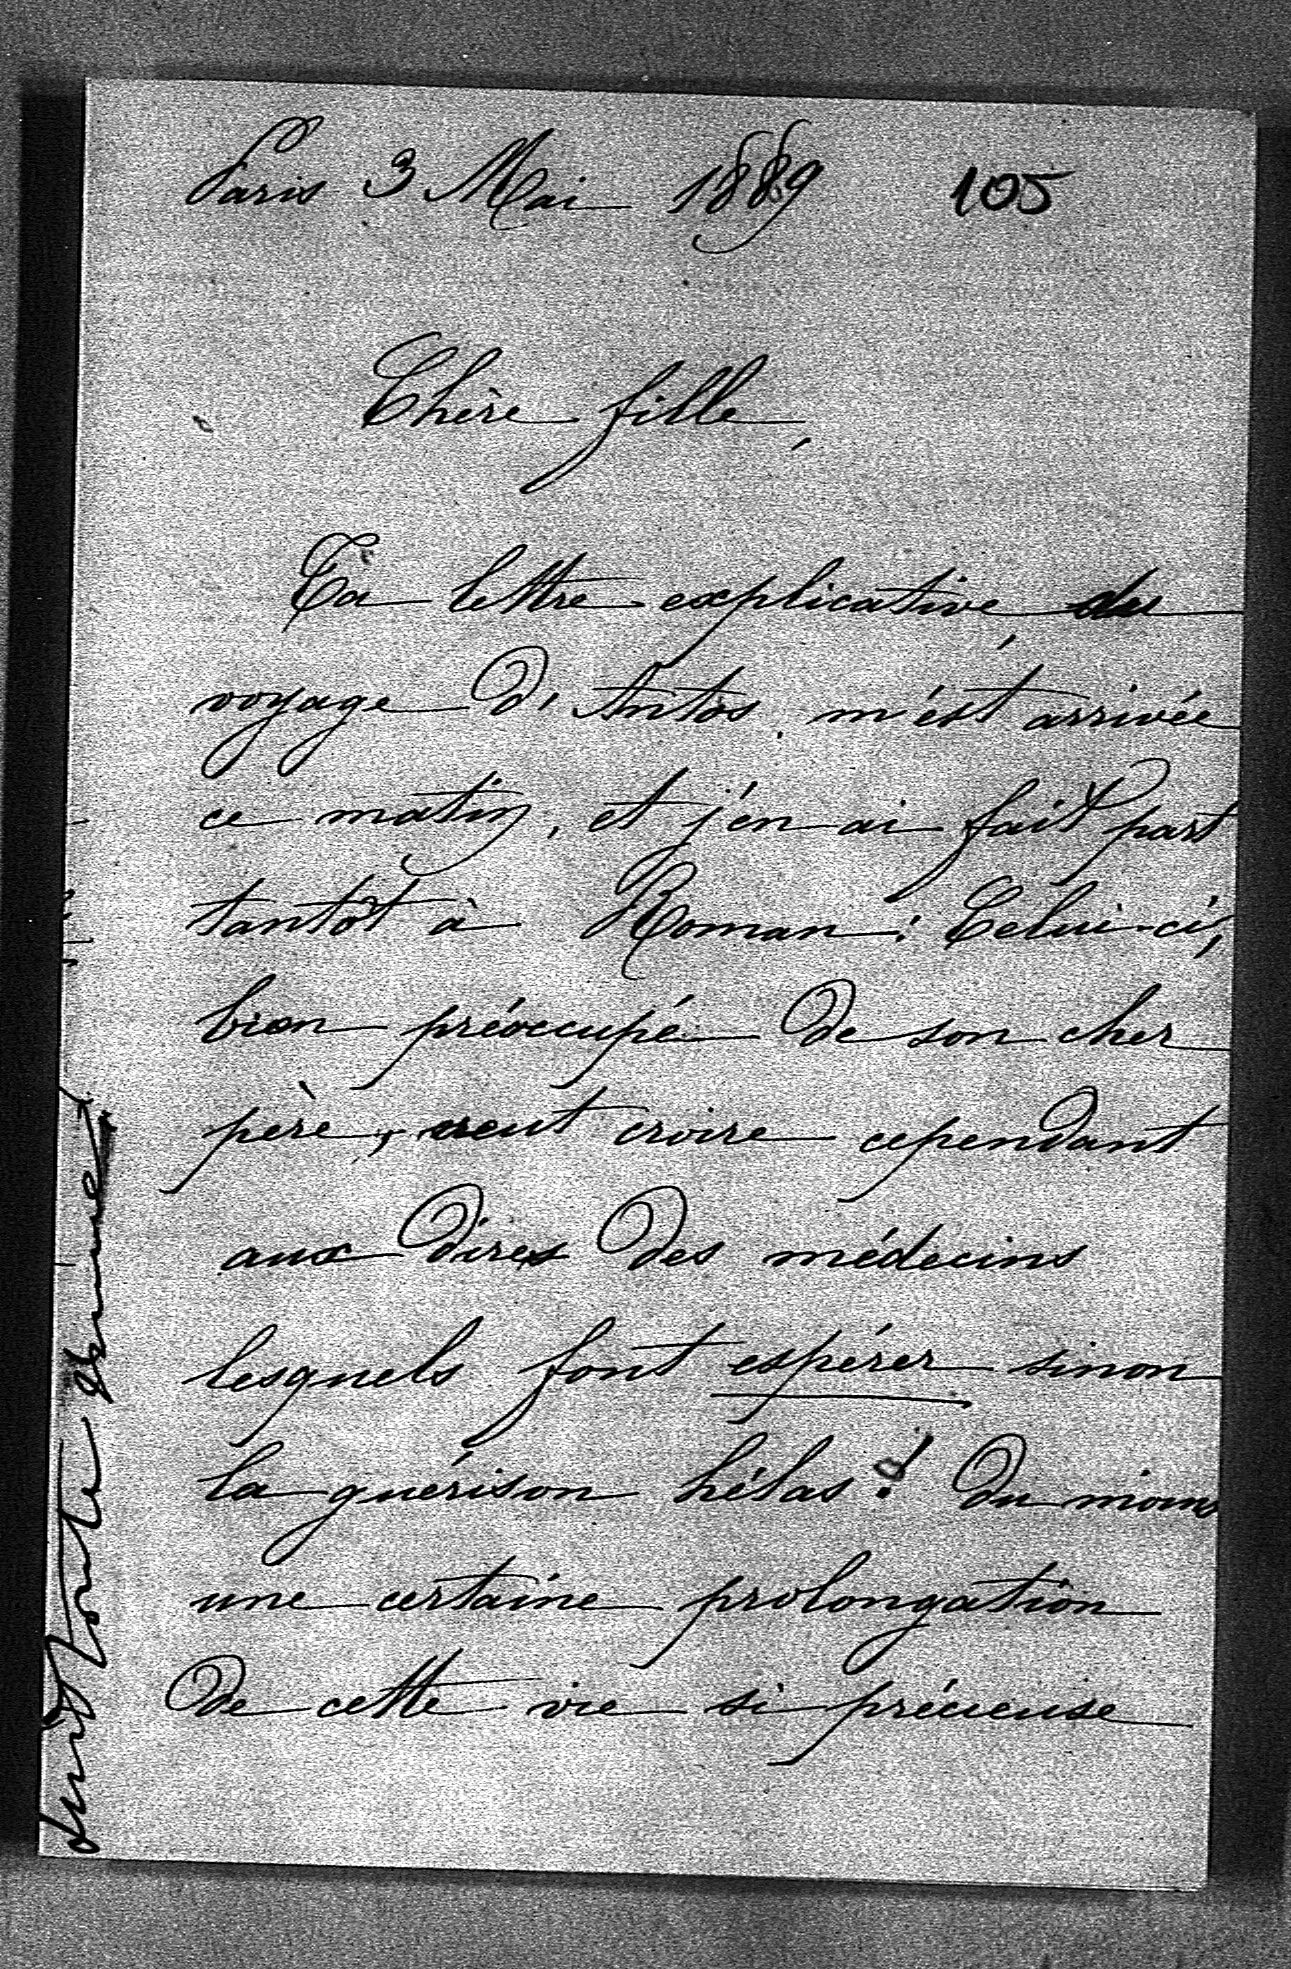 Paris 3 Mai 1889 105
Chère fille,
Ta lettre explicative du
voyage d'Antos m'est arrivée
ce matin, et j'en ai fait part
tantôt à Roman. Celui-ci,
bien préoccupé de son cher
père, veut croire cependant
aux dires des médecins
lesquels font espérer sinon
la guérison hélas! du moins
une certaine prolongation
de cette vie si précieuse
toute